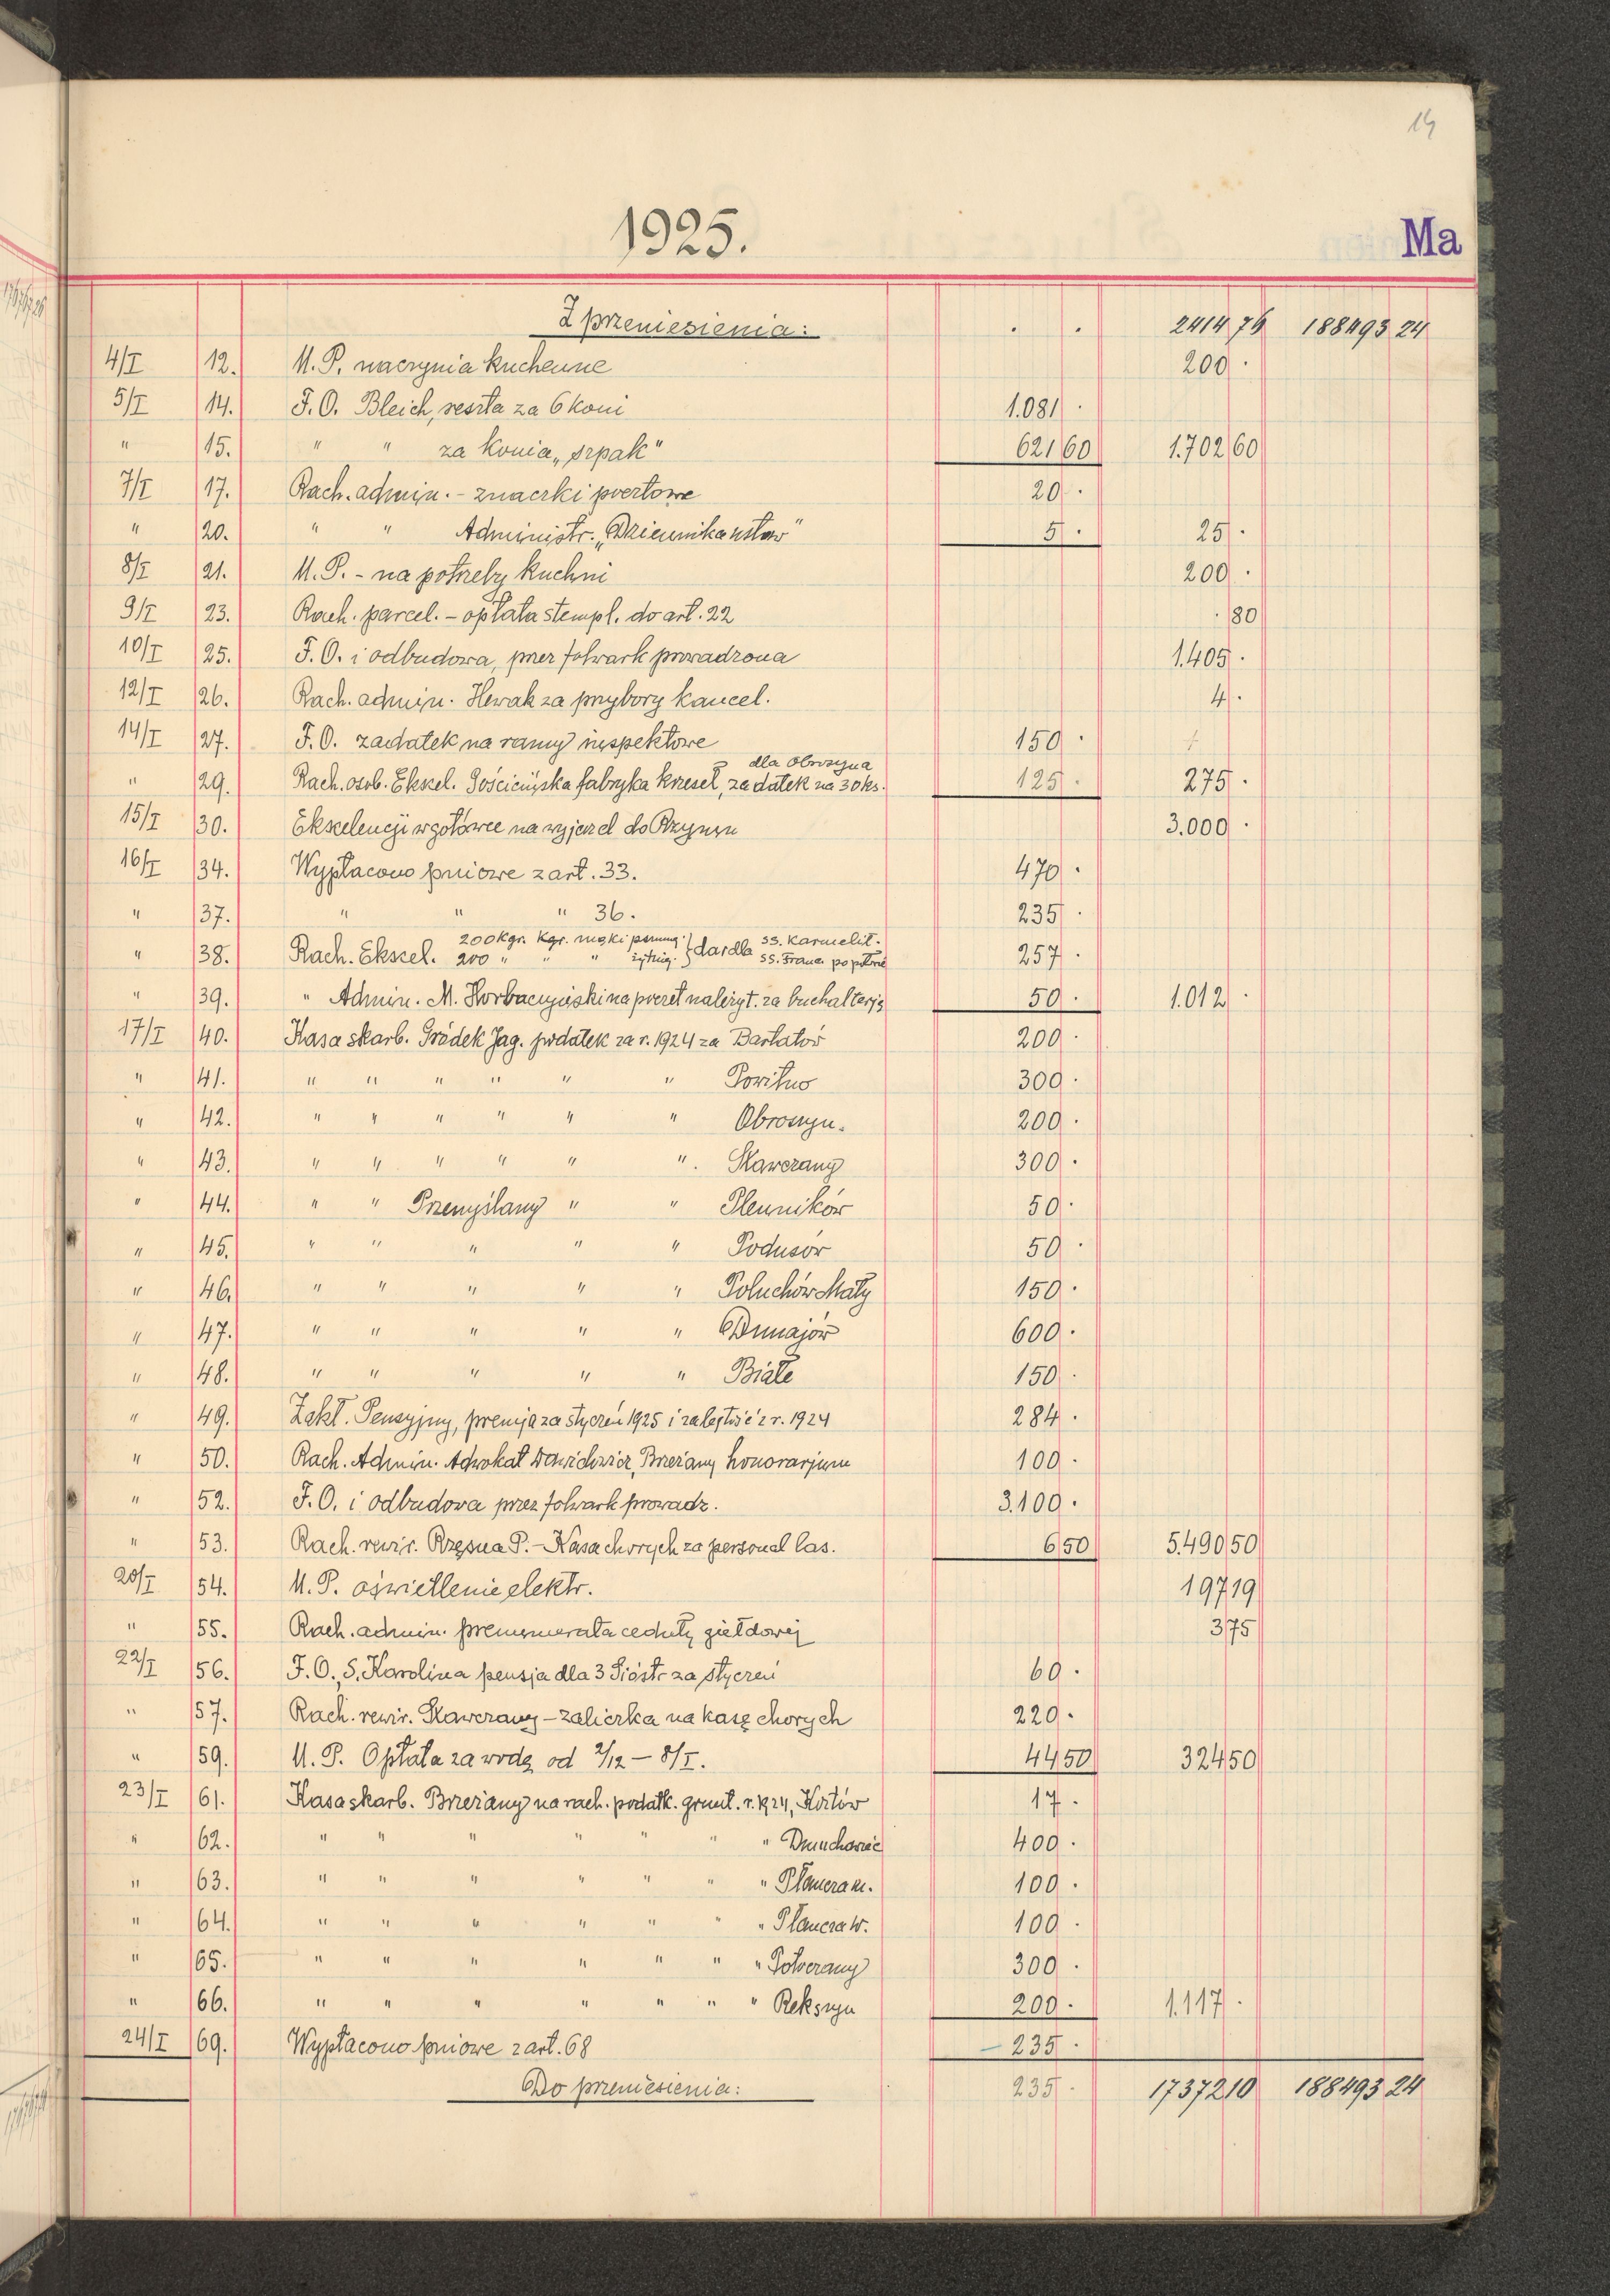 14
1925.
Ma
Z przeniesienia: . . 2414 76 188493 24
4/I 12. U. P. naczynia kuchenne 200 .
5/I 14. F. O. Bleich, reszta za 6 koni 1.081 .
" 15. " " za konia „srpak" 621 60 1.702 60
7/I 17. Rach. admin. - znaczki pocztowe 20 .
" 20. " " Administr. „Dziennika ustaw" 5 . 25 .
8/I 21. U. P. - na potrzeby kuchni 200 .
9/I 23. Rach. parcel. - opłata stempl. do art. 22 . 80
10/I 25. F. O. i odbudowa, przez folwark prowadzona 1.405 .
12/I 26. Rach. admin. Hewak za przybory kancel. 4 .
14/I 27. F. O. zadatek na ramy inspektowe 150 .
dla Obroszyna
" 29. Rach. osob. Ekscel. Gościcińska fabryka krzeseł, zadatek na 30 ks. 125 . 275 .
15/I 30. Ekscelencji w gotówce na wyjazd do Rzymu 3.000 .
16/I 34. Wypłacono pniowe z art. 33. 470 .
" 37. " " " 36. 235 .
200 kgr. kgr. mąki pszenng. ss. Karmelit.
" 38. Rach. Ekscel. 200 " " " żytnig. } dar dla ss. Franc. po połowie 257 .
" 39. " Admin. M. Horbaczyński na poczet należyt. za buchalterję 50 . 1.012 .
17/I 40. Kasa skarb. Gródek Jag. podatek za r. 1924 za Bartatów 200 .
" 41. " " " " " " Powitno 300 .
" 42. " " " " " " Obroszyn. 200 .
" 43. " " " " " " . Stawczany 300 .
" 44. " " Przemyślany " " Plenników 50 .
" 45. " " " " " Podusów 50 .
" 46. " " " " " Poluchów Mały 150 .
" 47. " " " " " Dunajów 600 .
" 48. " " " " " Białe 150 .
" 49. Zakł. Pensyjny, premja za styczeń 1925 i zaległość z r. 1924 284 .
" 50. Rach. Admin. Adwokat Dawidowicz, Brzeżany honorarjum 100 .
" 52. F. O. i odbudowa przez folwark prowadz. 3.100 .
" 53. Rach. rewir. Rzęsna P. - Kasa chorych za personal las. 6 50 5.490 50
20/I 54. U. P. oświetlenie elektr. 197 19
" 55. Rach. admin. prenumerata ceduły giełdowej 3 75
22/I 56. F. O. S. Karolina pensja dla 3 Sióstr za styczeń 60 .
" 57. Rach. rewir. Stawczany - zaliczka na kasę chorych 220 .
" 59. U. P. Opłata za wodę od 2/12 - 8/I. 44 50 324 50
23/I 61. Kasa skarb. Brzeżany na rach. podatk. grunt. r. 1924, Kotów 17 .
" 62. " " " " " " " Dmuchawiec 400 .
" 63. " " " " " " " Płaucza m. 100 .
" 64. " " " " " " " Płaucza W. 100 .
" 65. " " " " " " " Potoczany 300 .
" 66. " " " " " " " Rekszyn 200 . 1.117 .
24/I 69. Wypłacono pniowe z art. 68 - 235 .
Do przeniesienia: 235 . 17372 10 188493 24